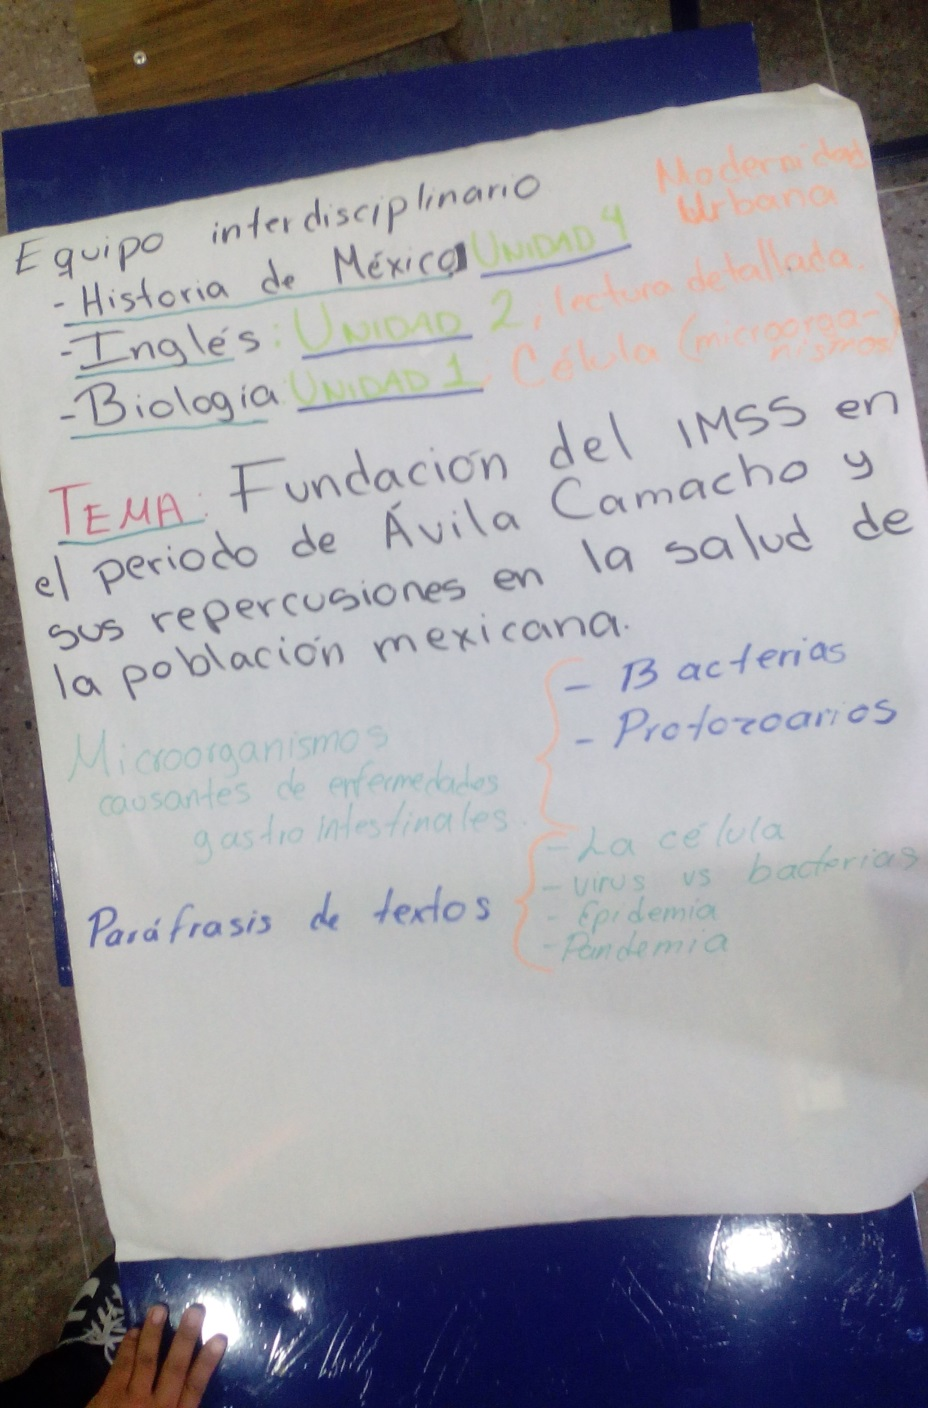 Equipo interdisciplinario
Modernidad
Urbana
- Historia de México UNIDAD 4
- Inglés: UNIDAD 2, lectura detallada.
- Biología UNIDAD 1, Célula (microorga-
nismos)
TEMA: Fundación del IMSS en
el periodo de Ávila Camacho y
sus repercusiones en la salud de
la población mexicana.
Microorganismos
causantes de enfermedades
gastrointestinales.
- Bacterias
- Protozoarios
Paráfrasis de textos
- La célula
- virus vs bacterias
- Epidemia
- Pandemia